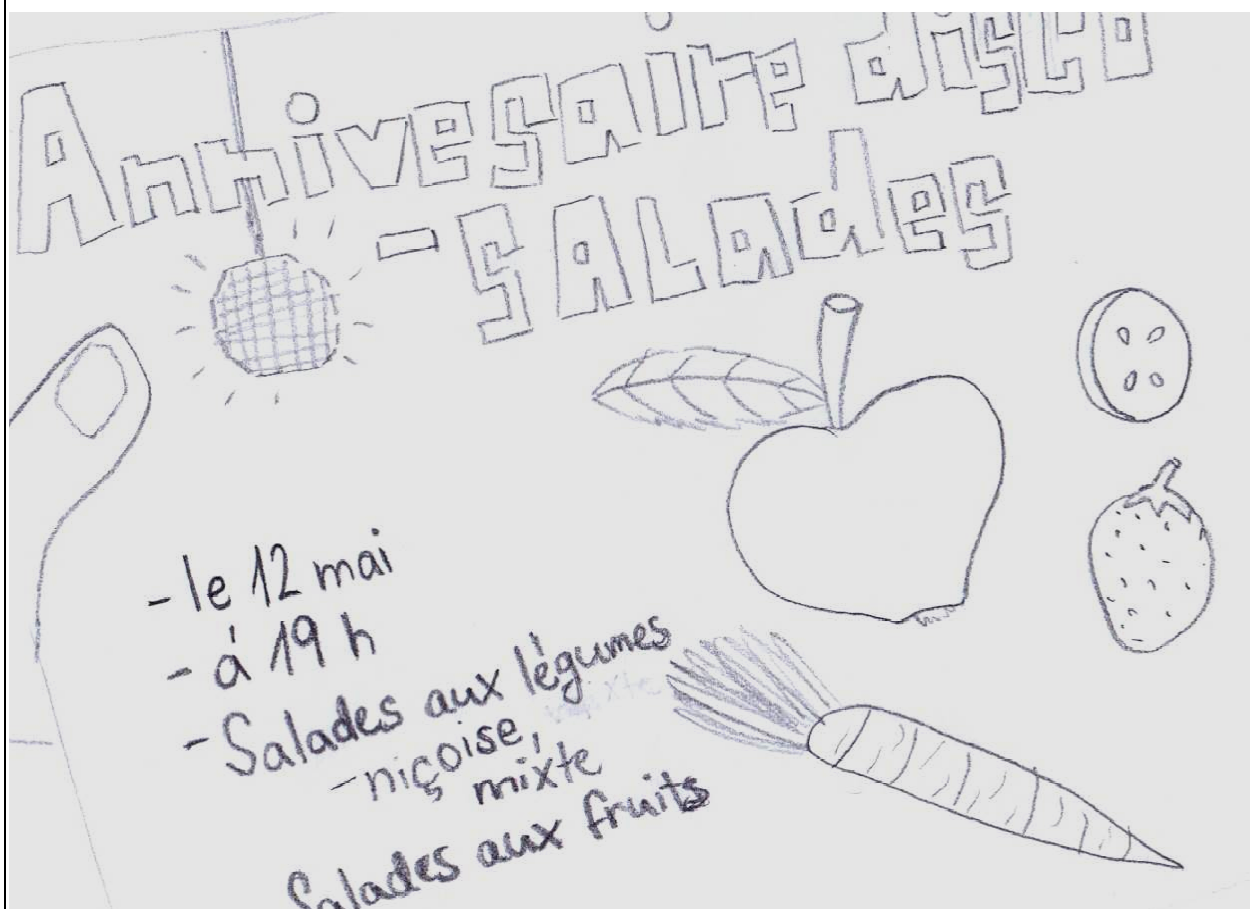 Annivesaire disco
-SALades
-le 12 mai
-à 19 h
-Salades aux légumes
-niçoise,
mixte
Salades aux fruits